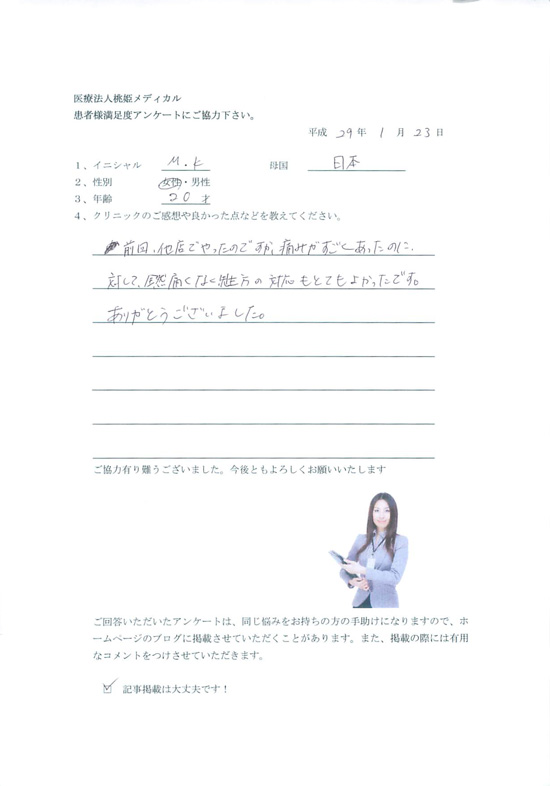 医療法人桃姫メディカル
患者様満足度アンケートにご協力下さい。
平成 29 年 1 月 23 日
1、イニシャル M.K 母国 日本
2、性別 女性・男性
3、年齢 20 才
4、クリニックのご感想や良かった点などを教えてください。
前回、他店でやったのですが、痛みがすごくあったのに
対して、全然痛くなく 方の対応もとてもよかったです。
ありがとうございました。
ご協力有り難うございました。今後ともよろしくお願いいたします
ご回答いただいたアンケートは、同じ悩みをお持ちの方の手助けになりますので、ホ
ームページのブログに掲載させていただくことがあります。また、掲載の際には有用
なコメントをつけさせていただきます。
☑ 記事掲載は大丈夫です！